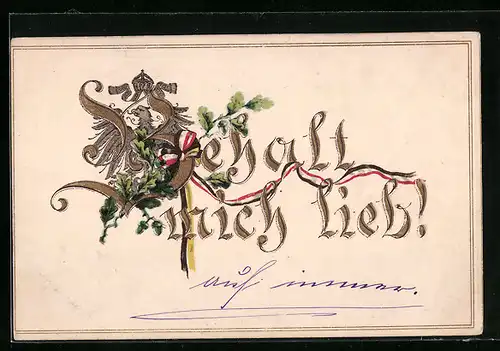 Behalt
mich lieb!
auf immer.